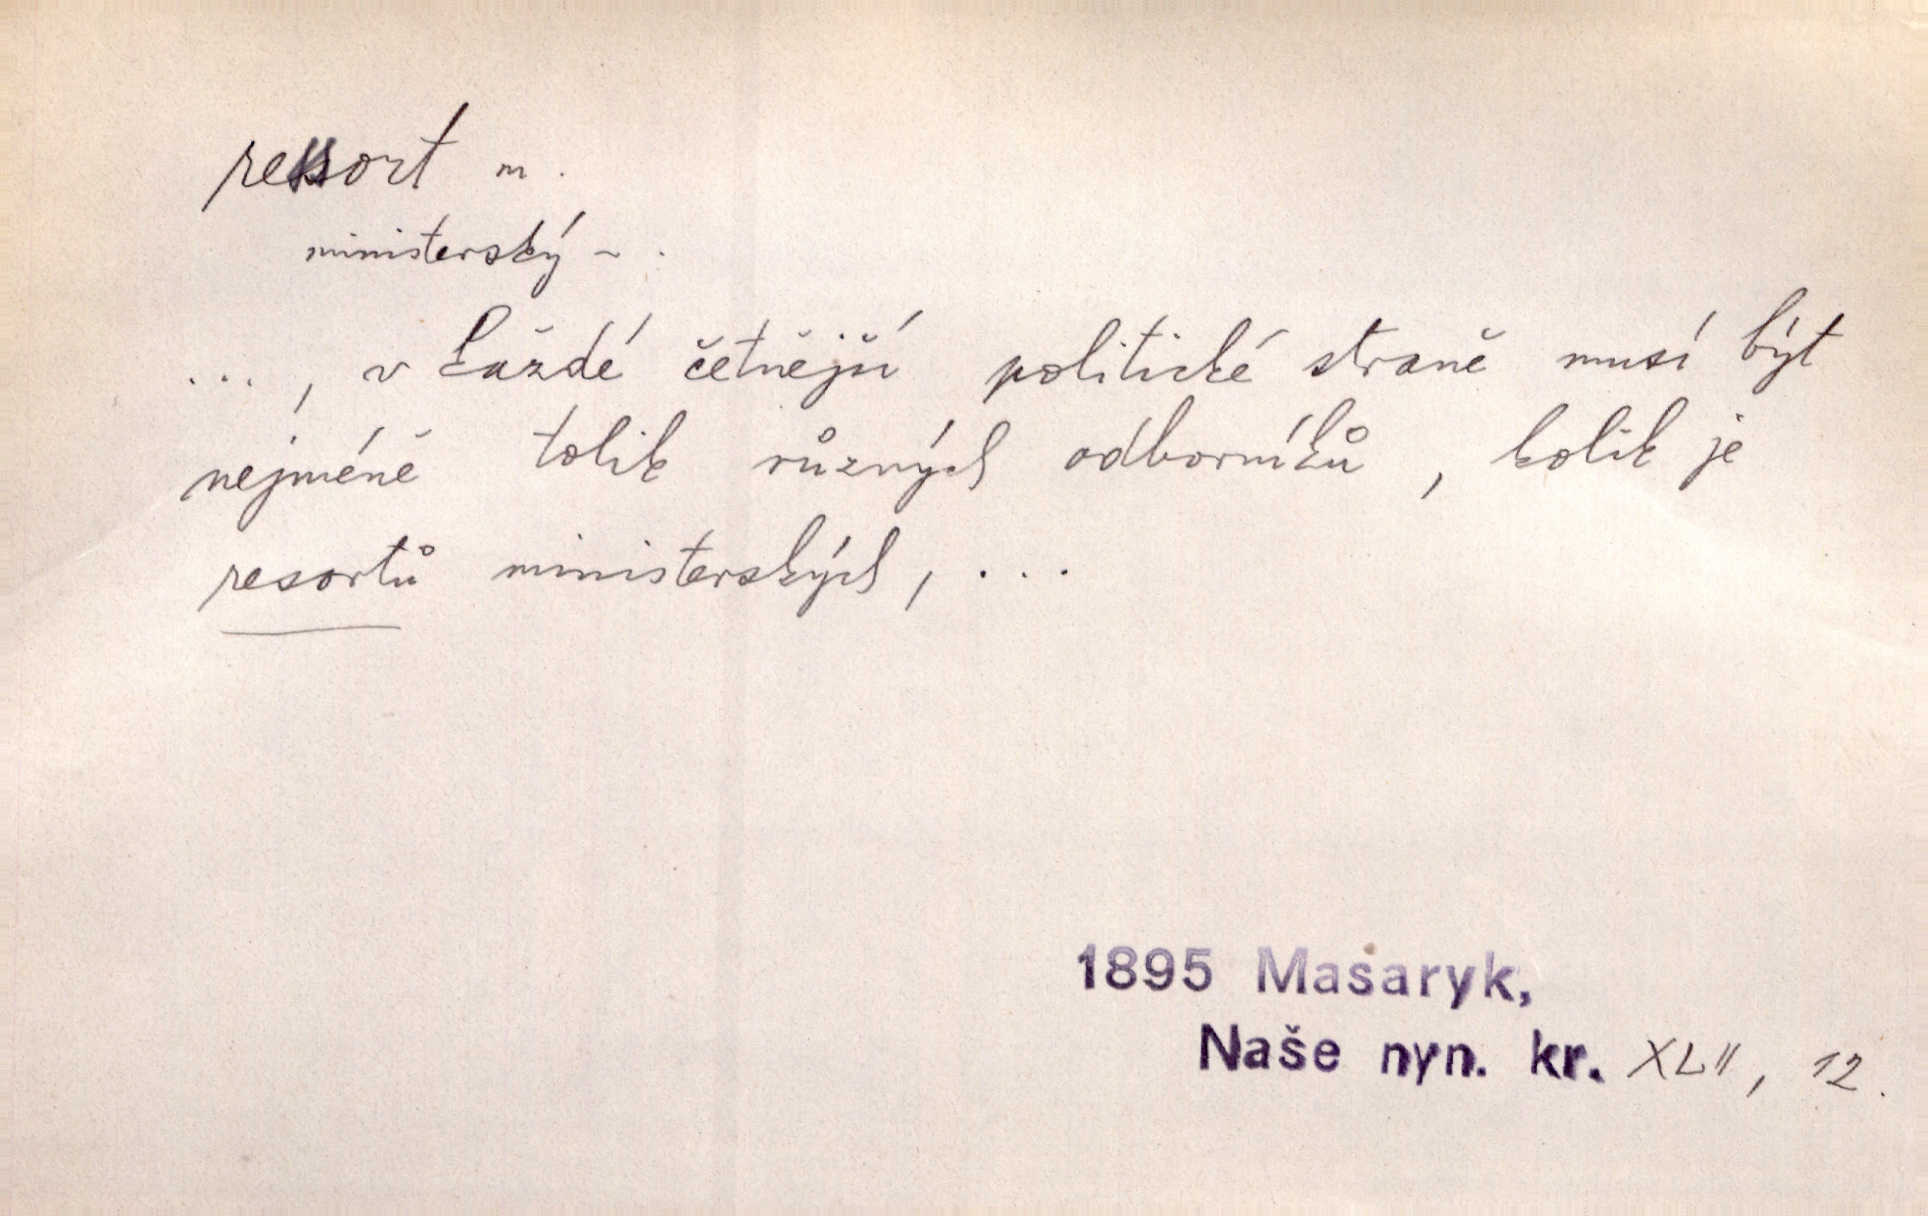 ressort m.
ministerský ~.
..., v každé četnější politické straně musí být
nejméně tolik různých odborníků, kolik je
resortů ministerských, ...
1895 Masaryk,
Naše nyn. kr. XLII, 12.